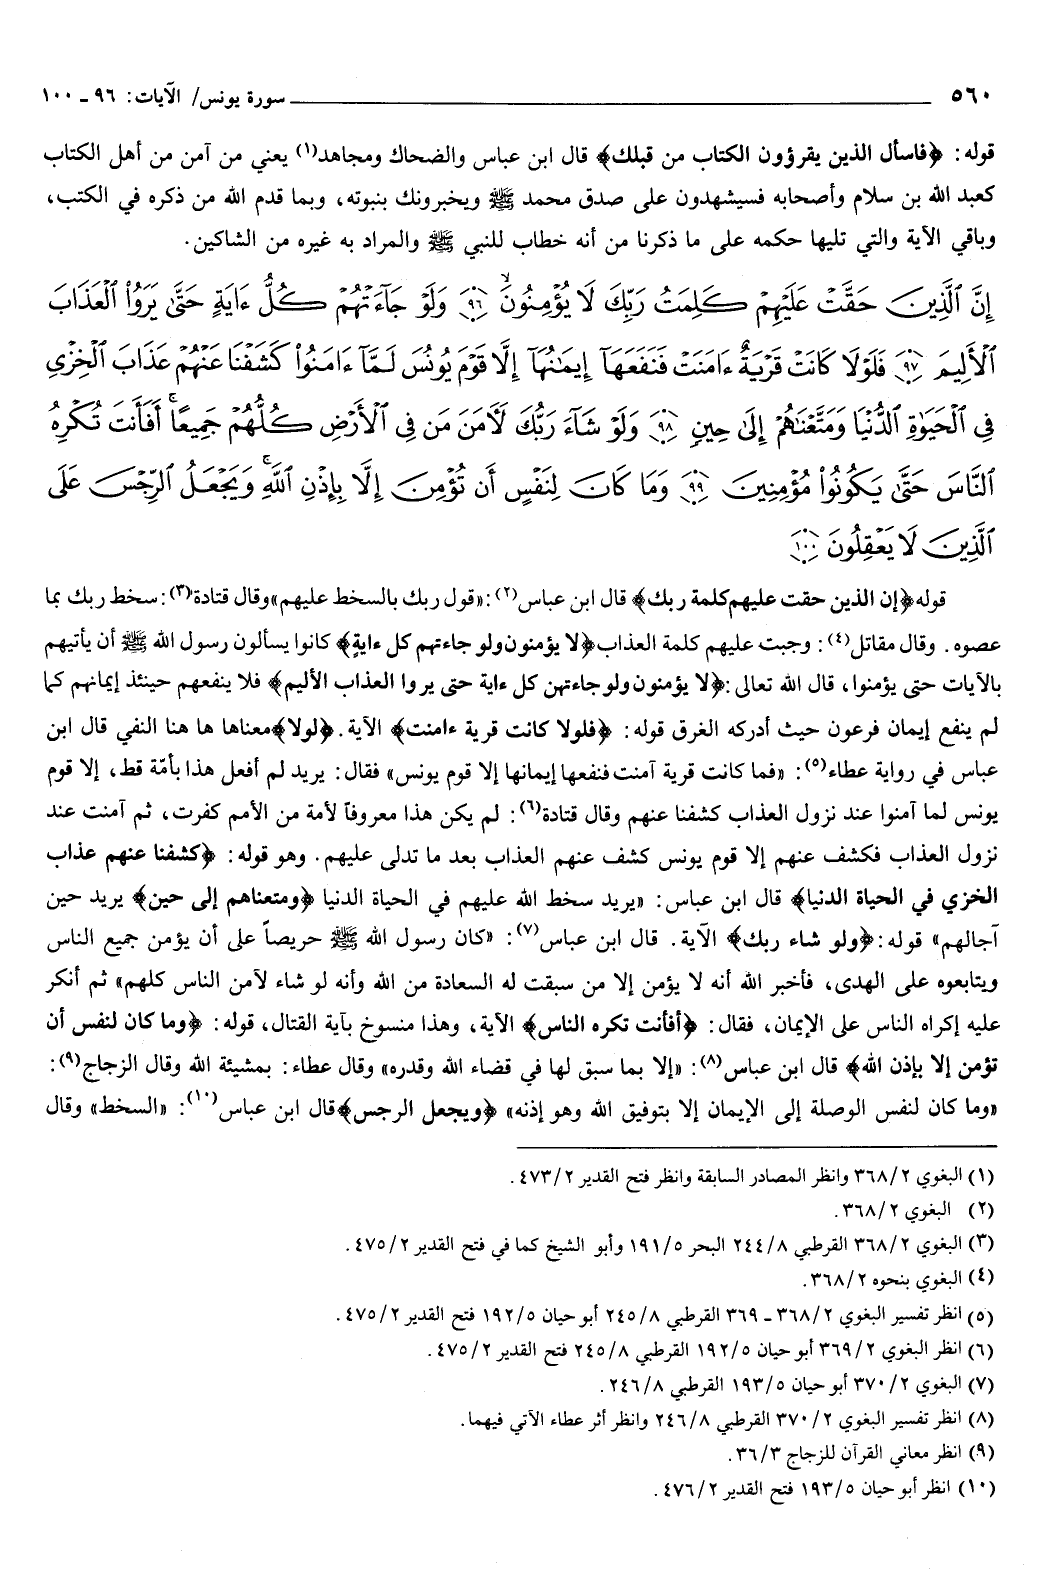 ٥٦٠ سورة يونس/ الآيات: ٩٦ - ١٠٠
قوله: ﴿فاسأل الذين يقرؤون الكتاب من قبلك﴾ قال ابن عباس والضحاك ومجاهد(١) يعني من آمن من أهل الكتاب
كعبد الله بن سلام وأصحابه فسيشهدون على صدق محمد ﷺ ويخبرونك بنبوته، وبما قدم الله من ذكره في الكتب،
وباقي الآية والتي تليها حكمه على ما ذكرنا من أنه خطاب للنبي ﷺ والمراد به غيره من الشاكين.
إِنَّ ٱلَّذِينَ حَقَّتْ عَلَيْهِمْ كَلِمَتُ رَبِّكَ لَا يُؤْمِنُونَ ۙ ٩٦ وَلَوْ جَآءَتْهُمْ كُلُّ ءَايَةٍ حَتَّىٰ يَرَوُا۟ ٱلْعَذَابَ
ٱلْأَلِيمَ ٩٧ فَلَوْلَا كَانَتْ قَرْيَةٌ ءَامَنَتْ فَنَفَعَهَآ إِيمَٰنُهَآ إِلَّا قَوْمَ يُونُسَ لَمَّآ ءَامَنُوا۟ كَشَفْنَا عَنْهُمْ عَذَابَ ٱلْخِزْىِ
فِى ٱلْحَيَوٰةِ ٱلدُّنْيَا وَمَتَّعْنَٰهُمْ إِلَىٰ حِينٍ ٩٨ وَلَوْ شَآءَ رَبُّكَ لَـَٔامَنَ مَن فِى ٱلْأَرْضِ كُلُّهُمْ جَمِيعًا ۚ أَفَأَنتَ تُكْرِهُ
ٱلنَّاسَ حَتَّىٰ يَكُونُوا۟ مُؤْمِنِينَ ٩٩ وَمَا كَانَ لِنَفْسٍ أَن تُؤْمِنَ إِلَّا بِإِذْنِ ٱللَّهِ ۚ وَيَجْعَلُ ٱلرِّجْسَ عَلَى
ٱلَّذِينَ لَا يَعْقِلُونَ ١٠٠
قوله﴿إن الذين حقت عليهم كلمة ربك﴾ قال ابن عباس(٢):«قول ربك بالسخط عليهم»وقال قتادة(٣):سخط ربك بما
عصوه. وقال مقاتل(٤): وجبت عليهم كلمة العذاب﴿لا يؤمنون ولو جاءتهم كل ءاية﴾ كانوا يسألون رسول الله ﷺ أن يأتيهم
بالآيات حتى يؤمنوا، قال الله تعالى:﴿لا يؤمنون ولو جاءتهن كل ءاية حتى يروا العذاب الأليم﴾ فلا ينفعهم حينئذ إيمانهم كما
لم ينفع إيمان فرعون حيث أدركه الغرق قوله: ﴿فلولا كانت قرية ءامنت﴾ الآية. ﴿لولا﴾معناها ها هنا النفي قال ابن
عباس في رواية عطاء(٥): «فما كانت قرية آمنت فنفعها إيمانها إلا قوم يونس» فقال: يريد لم أفعل هذا بأمّة قط، إلا قوم
يونس لما آمنوا عند نزول العذاب كشفنا عنهم وقال قتادة(٦): لم يكن هذا معروفاً لأمة من الأمم كفرت، ثم آمنت عند
نزول العذاب فكشف عنهم إلا قوم يونس كشف عنهم العذاب بعد ما تدلى عليهم. وهو قوله: ﴿كشفنا عنهم عذاب
الخزي في الحياة الدنيا﴾ قال ابن عباس: «يريد سخط الله عليهم في الحياة الدنيا ﴿ومتعناهم إلى حين﴾ يريد حين
آجالهم» قوله:﴿ولو شاء ربك﴾ الآية. قال ابن عباس(٧): «كان رسول الله ﷺ حريصاً على أن يؤمن جميع الناس
ويتابعوه على الهدى، فأخبر الله أنه لا يؤمن إلا من سبقت له السعادة من الله وأنه لو شاء لآمن الناس كلهم» ثم أنكر
عليه إكراه الناس على الإيمان، فقال: ﴿أفأنت تكره الناس﴾ الآية، وهذا منسوخ بآية القتال، قوله: ﴿وما كان لنفس أن
تؤمن إلا بإذن الله﴾ قال ابن عباس(٨): «إلا بما سبق لها في قضاء الله وقدره» وقال عطاء: بمشيئة الله وقال الزجاج(٩):
«وما كان لنفس الوصلة إلى الإيمان إلا بتوفيق الله وهو إذنه» ﴿ويجعل الرجس﴾قال ابن عباس(١٠): «السخط» وقال
(١) البغوي ٣٦٨/٢ وانظر المصادر السابقة وانظر فتح القدير ٤٧٣/٢.
(٢) البغوي ٣٦٨/٢.
(٣) البغوي ٣٦٨/٢ القرطبي ٢٤٤/٨ البحر ١٩١/٥ وأبو الشيخ كما في فتح القدير ٤٧٥/٢.
(٤) البغوي بنحوه ٣٦٨/٢.
(٥) انظر تفسير البغوي ٣٦٨/٢ - ٣٦٩ القرطبي ٢٤٥/٨ أبو حيان ١٩٢/٥ فتح القدير ٤٧٥/٢.
(٦) انظر البغوي ٣٦٩/٢ أبو حيان ١٩٢/٥ القرطبي ٢٤٥/٨ فتح القدير ٤٧٥/٢.
(٧) البغوي ٣٧٠/٢ أبو حيان ١٩٣/٥ القرطبي ٢٤٦/٨.
(٨) انظر تفسير البغوي ٣٧٠/٢ القرطبي ٢٤٦/٨ وانظر أثر عطاء الآتي فيهما.
(٩) انظر معاني القرآن للزجاج ٣٦/٣.
(١٠) انظر أبو حيان ١٩٣/٥ فتح القدير ٤٧٦/٢.